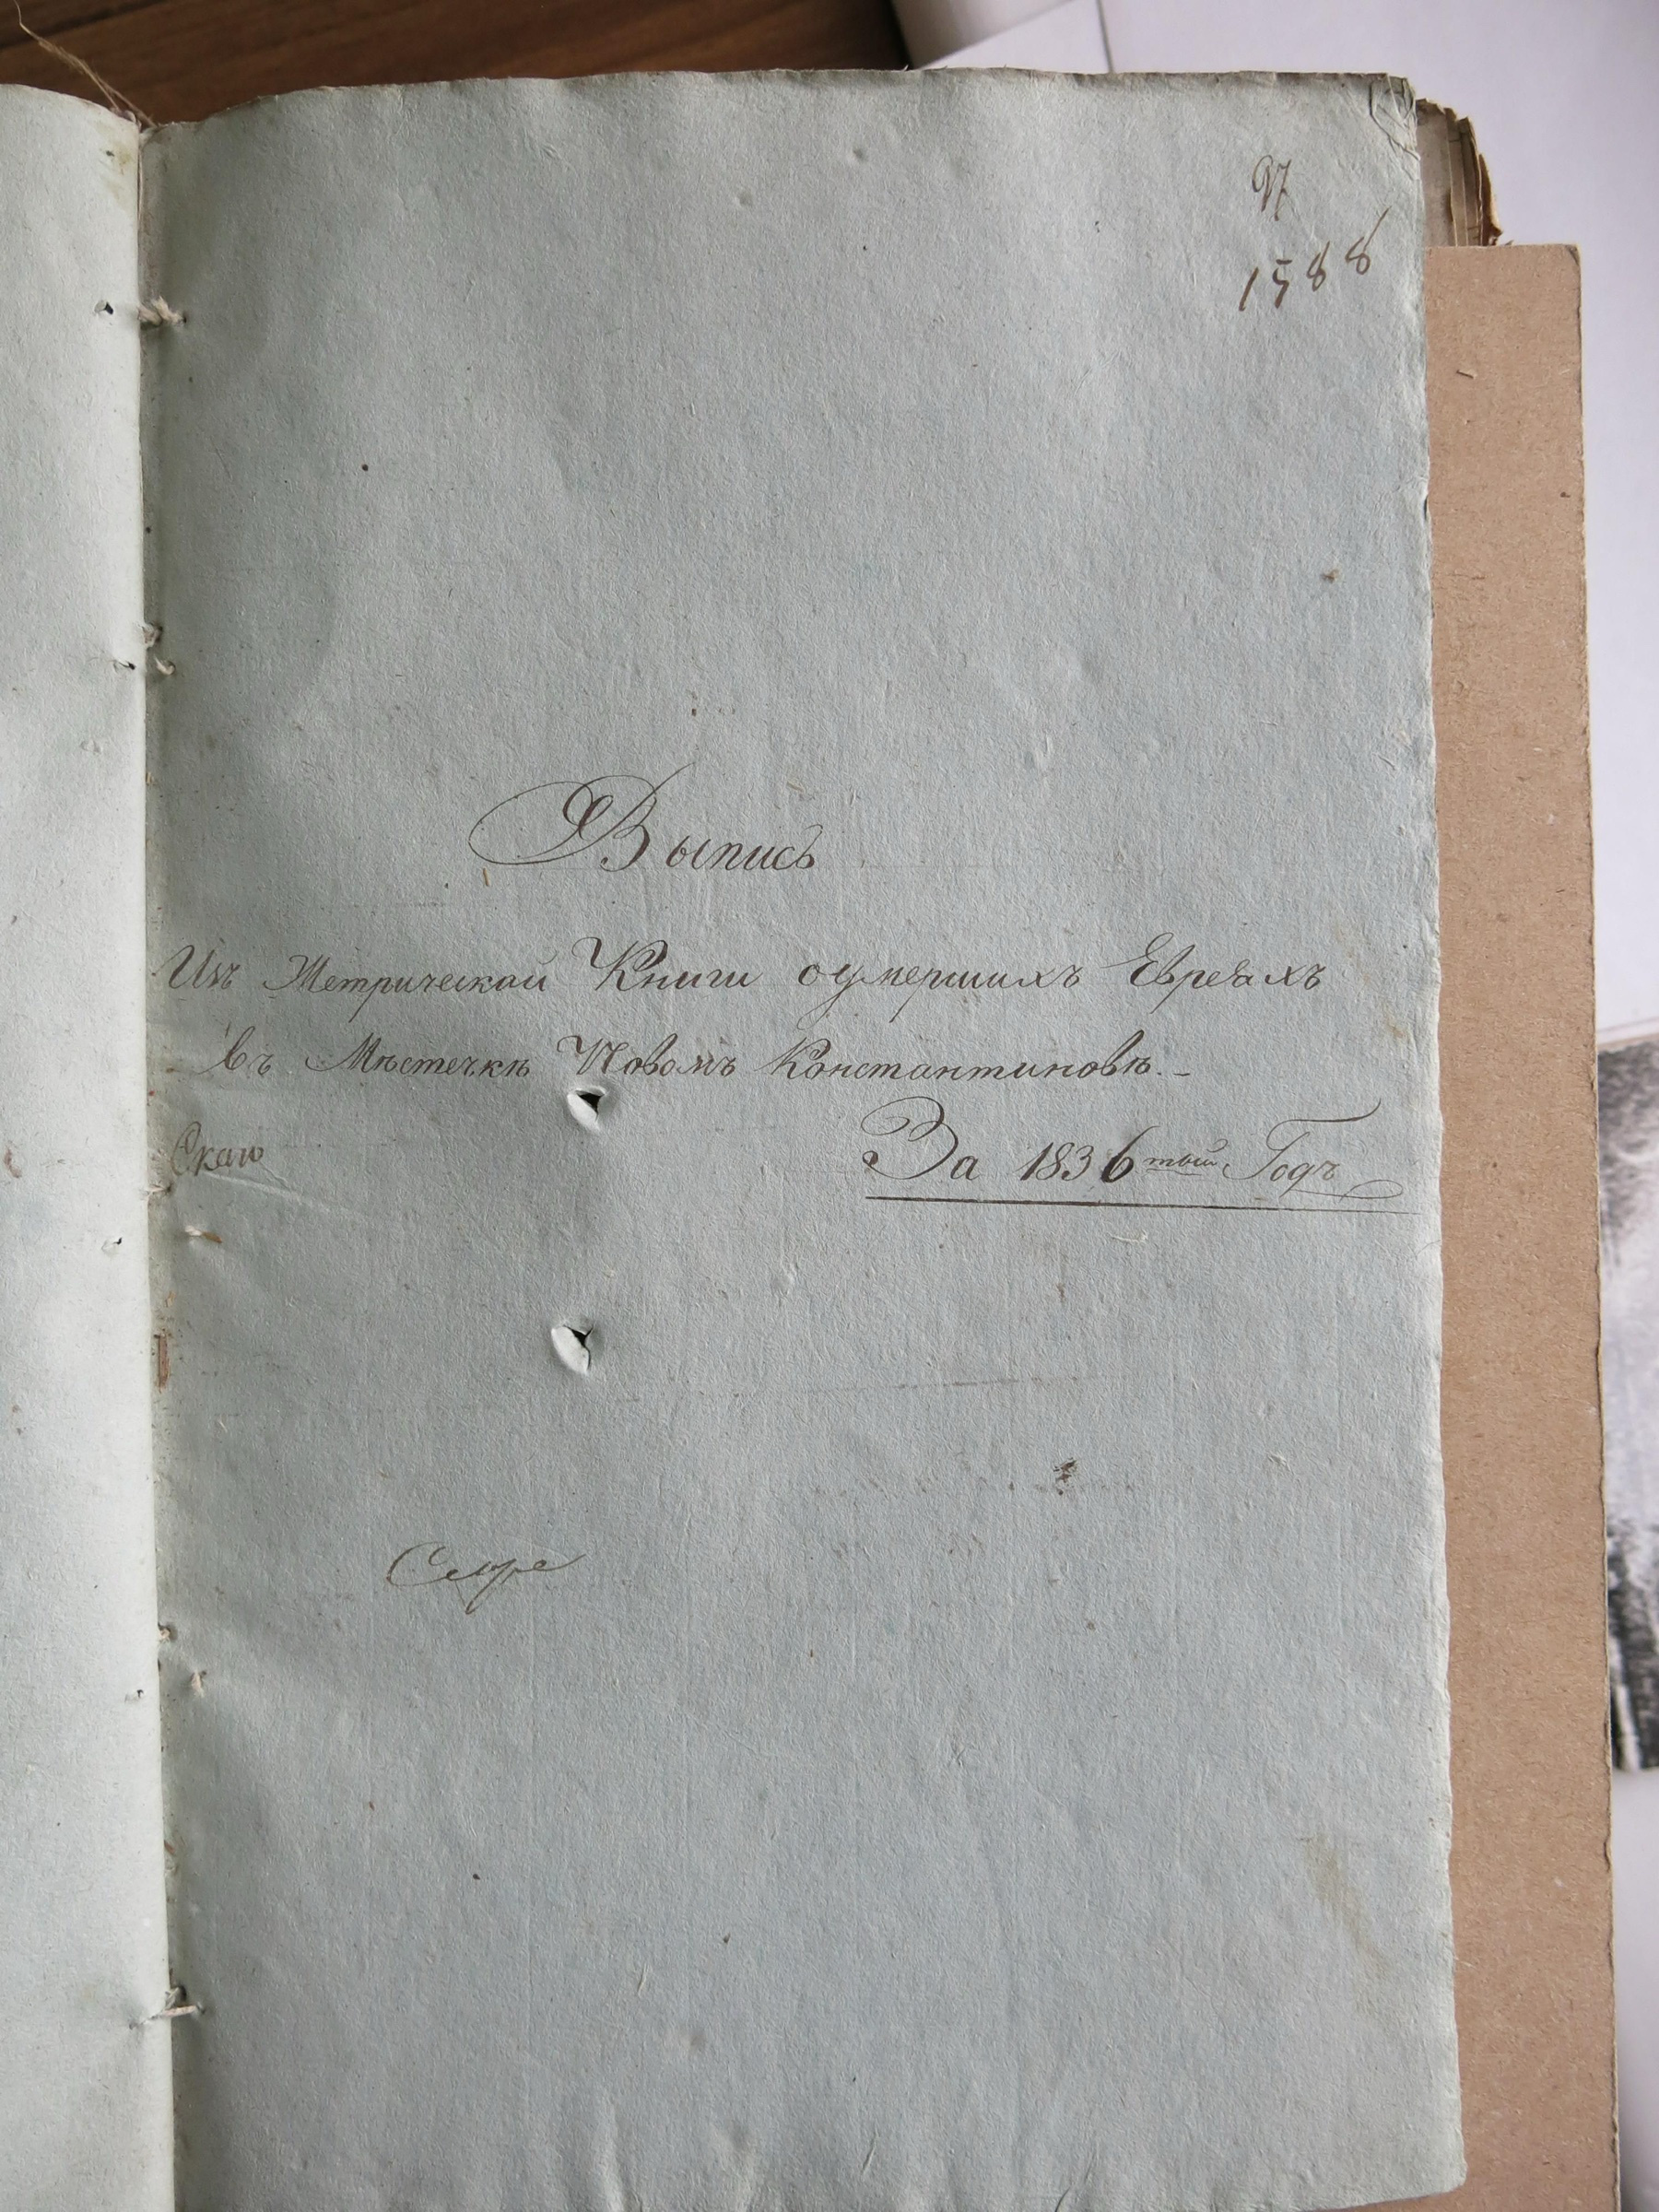 97
1588
Выпись
Изъ Метрической Книги оумершихъ Евреяхъ
въ Мѣстечкѣ Новомъ Константиновѣ.-
За 1836тый Годъ